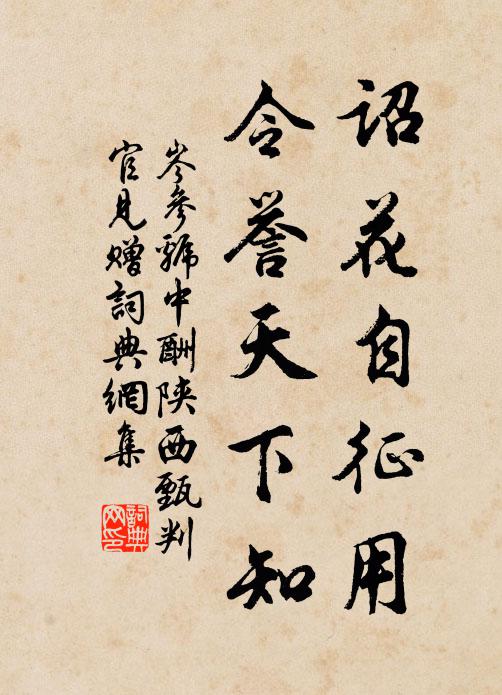 詔花自征用
令誉天下知
岑參虢中酬陕西甄判
官見贈詞典網集
詞典网印